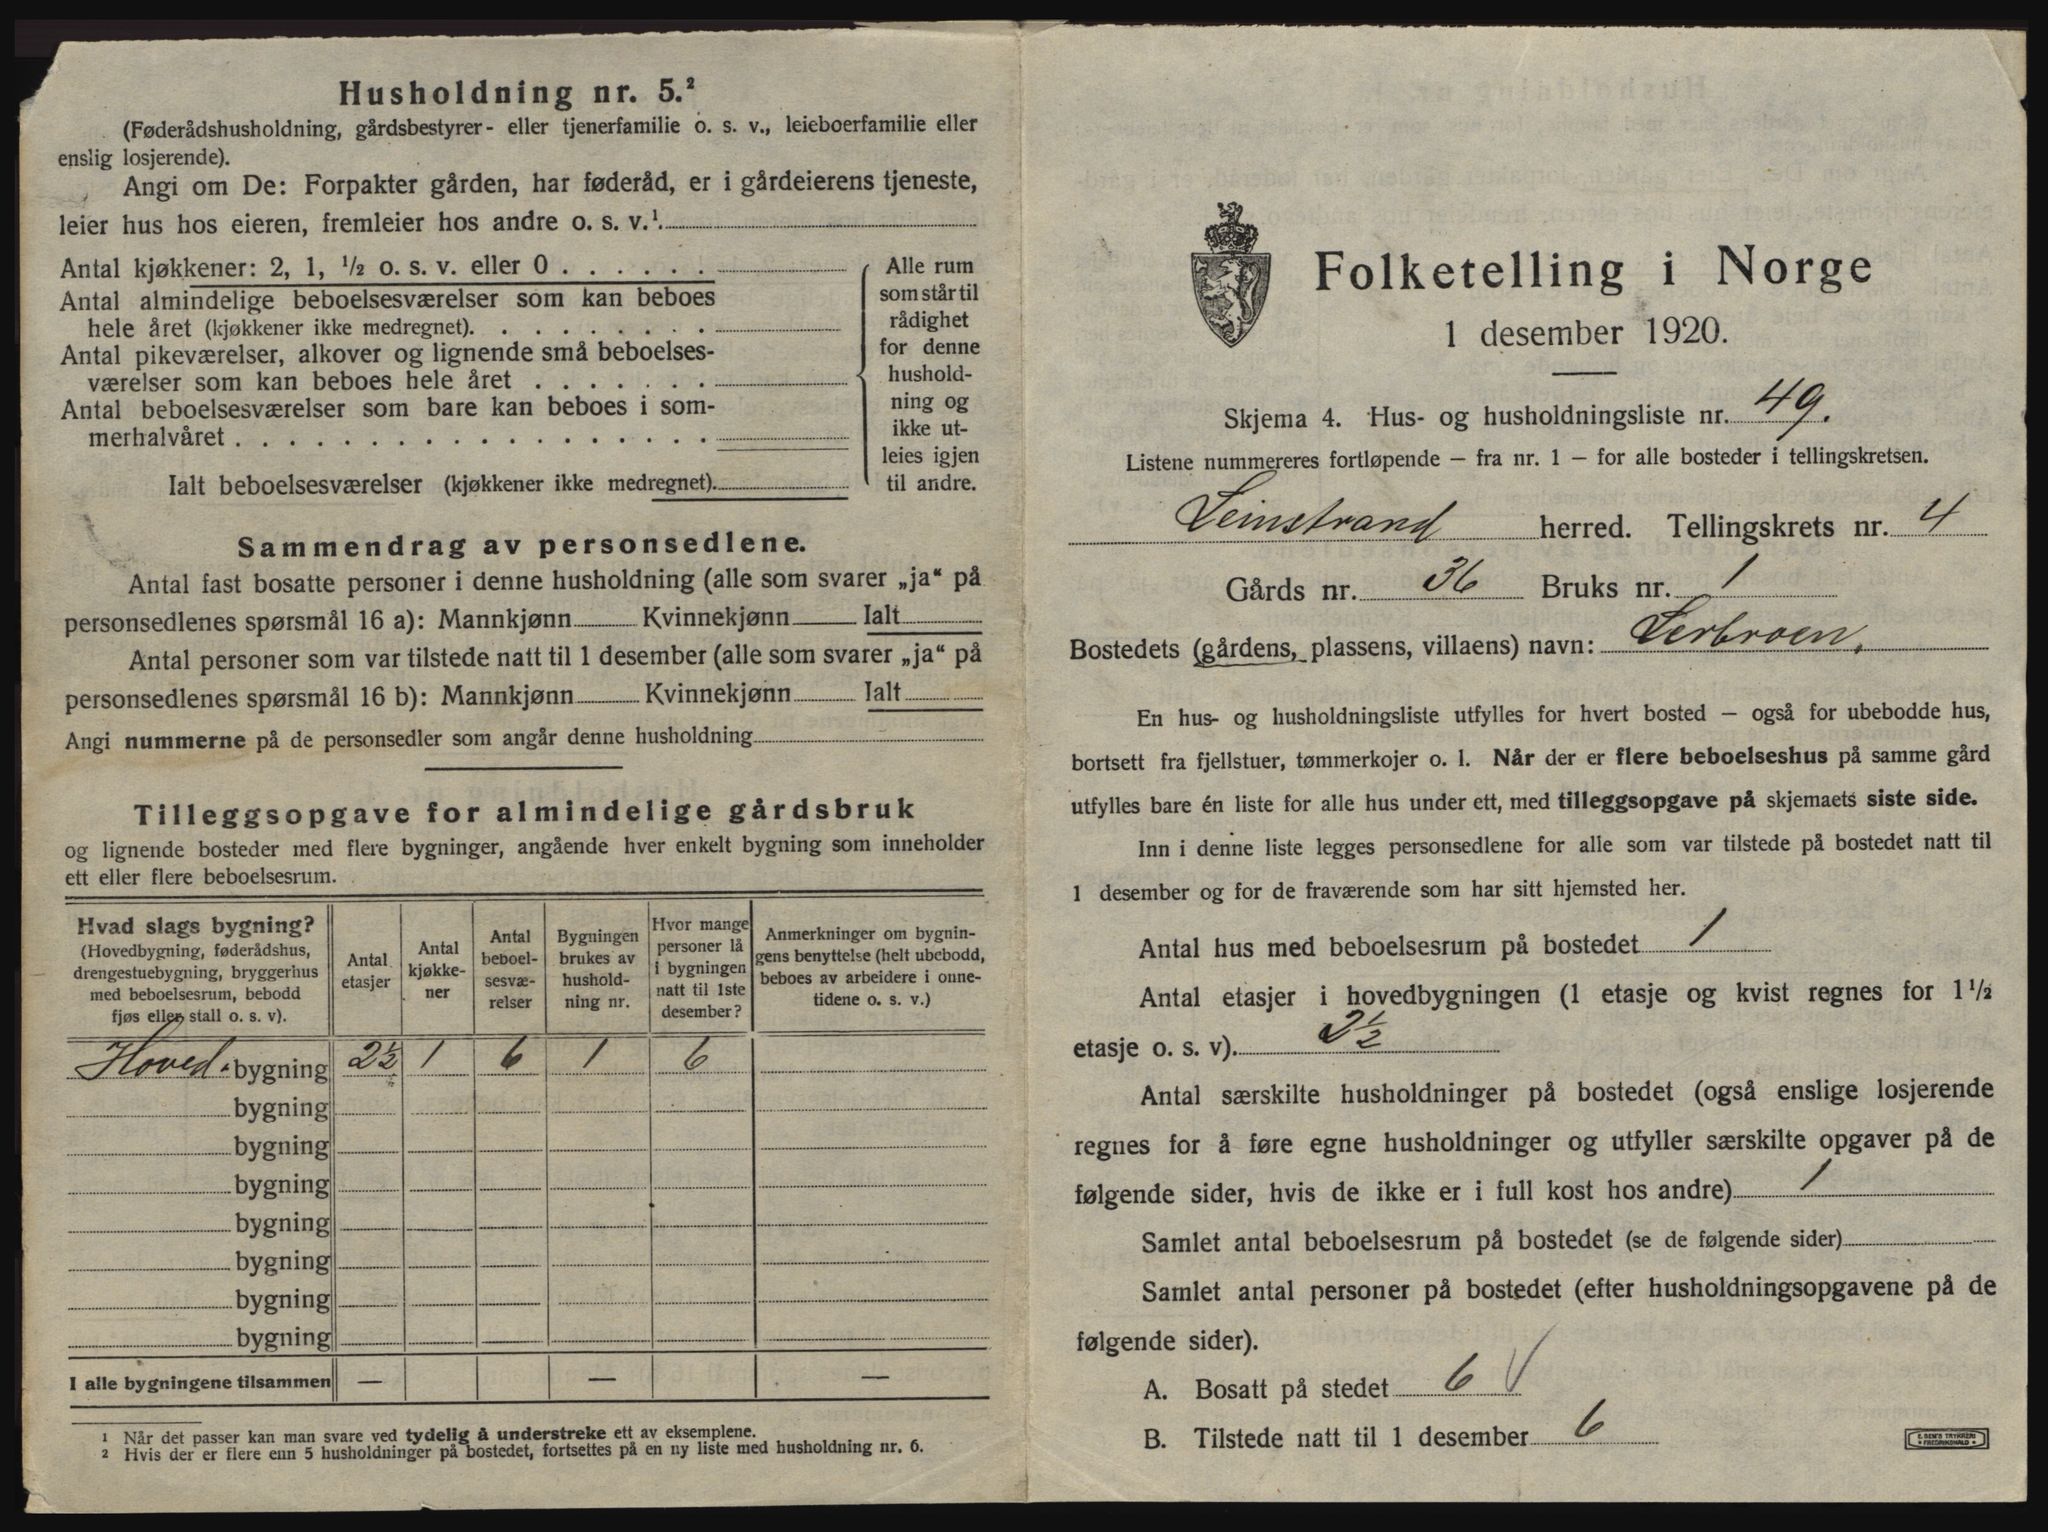 Husholdning nr. 5.²
(Føderådshusholdning, gårdsbestyrer- eller tjenerfamilie o. s. v., leieboerfamilie eller
enslig losjerende).
Angi om De: Forpakter gården, har føderåd, er i gårdeierens tjeneste,
leier hus hos eieren, fremleier hos andre o. s. v.¹
Antal kjøkkener: 2, 1, ½ o. s. v. eller 0 . . . . . .
Antal almindelige beboelsesværelser som kan beboes
hele året (kjøkkener ikke medregnet). . . . . . . . .
Antal pikeværelser, alkover og lignende små beboelses-
værelser som kan beboes hele året . . . . . . .
Antal beboelsesværelser som bare kan beboes i som-
merhalvåret . . . . . . . . . . . . . . . . . .
Ialt beboelsesværelser (kjøkkener ikke medregnet).
Alle rum
som står til
rådighet
for denne
hushold-
ning og
ikke ut-
leies igjen
til andre.
Sammendrag av personsedlene.
Antal fast bosatte personer i denne husholdning (alle som svarer „ja“ på
personsedlenes spørsmål 16 a): Mannkjønn Kvinnekjønn Ialt
Antal personer som var tilstede natt til 1 desember (alle som svarer „ja“ på
personsedlenes spørsmål 16 b): Mannkjønn Kvinnekjønn Ialt
Angi nummerne på de personsedler som angår denne husholdning
Tilleggsopgave for almindelige gårdsbruk
og lignende bosteder med flere bygninger, angående hver enkelt bygning som inneholder
ett eller flere beboelsesrum.
Hvad slags bygning?
(Hovedbygning, føderådshus,
drengestuebygning, bryggerhus
med beboelsesrum, bebodd
fjøs eller stall o. s. v).
Antal
etasjer
Antal
kjøkke-
ner
Antal
beboel-
sesvæ-
relser
Bygningen
brukes av
hushold-
ning nr.
Hvor mange
personer lå
i bygningen
natt til 1ste
desember?
Anmerkninger om bygnin-
gens benyttelse (helt ubebodd,
beboes av arbeidere i onne-
tidene o. s. v.)
Hoved. bygning 2½ 1 6 1 6
bygning
bygning
bygning
bygning
bygning
bygning
bygning
I alle bygningene tilsammen — — —
¹ Når det passer kan man svare ved tydelig å understreke ett av eksemplene.
² Hvis der er flere enn 5 husholdninger på bostedet, fortsettes på en ny liste med husholdning nr. 6.
Folketelling i Norge
1 desember 1920.
Skjema 4. Hus- og husholdningsliste nr. 49.
Listene nummereres fortløpende – fra nr. 1 – for alle bosteder i tellingskretsen.
Leinstrand herred. Tellingskrets nr. 4
Gårds nr. 36 Bruks nr. 1
Bostedets (gårdens, plassens, villaens) navn: Lerbroen.
En hus- og husholdningsliste utfylles for hvert bosted – også for ubebodde hus,
bortsett fra fjellstuer, tømmerkojer o. l. Når der er flere beboelseshus på samme gård
utfylles bare én liste for alle hus under ett, med tilleggsopgave på skjemaets siste side.
Inn i denne liste legges personsedlene for alle som var tilstede på bostedet natt til
1 desember og for de fraværende som har sitt hjemsted her.
Antal hus med beboelsesrum på bostedet 1
Antal etasjer i hovedbygningen (1 etasje og kvist regnes for 1½
etasje o. s. v). 2½
Antal særskilte husholdninger på bostedet (også enslige losjerende
regnes for å føre egne husholdninger og utfyller særskilte opgaver på de
følgende sider, hvis de ikke er i full kost hos andre) 1
Samlet antal beboelsesrum på bostedet (se de følgende sider)
Samlet antal personer på bostedet (efter husholdningsopgavene på de
følgende sider).
A. Bosatt på stedet 6 √
B. Tilstede natt til 1 desember 6
E. SEM'S TRYKKERI
* FREDRIKSHALD *